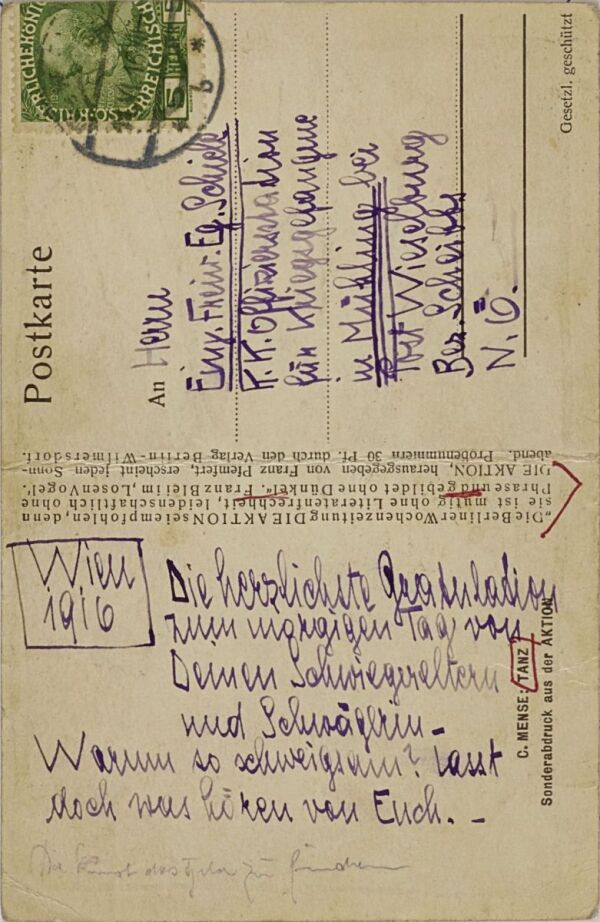 Postkarte
An Herrn
Einj. Freiw. Eg. Schiele
K.K. Offiziersstation
für Kriegsgefangene
in Mühling bei
Post Wieselburg
Bez. Scheibbs
N.Ö.
Gesetzl. geschützt
„Die Berliner Wochenzeitung DIE AKTION sei empfohlen, denn
sie ist mutig ohne Literatenfrechheit, leidenschaftlich ohne
Phrase und gebildet ohne Dünkel". Franz Blei im „Losen Vogel".
DIE AKTION, herausgegeben von Franz Pfemfert, erscheint jeden Sonn-
abend. Probenummern 30 Pf. durch den Verlag Berlin-Wilmersdorf.
Wien
1916
Die herzlichste Gratulation
zum morgigen Tag von
Deinen Schwiegereltern
und Schwägerin –
Warum so schweigsam? Lasst
doch was hören von Euch. –
C. MENSE: TANZ
Sonderabdruck aus der AKTION
Die Kunst das zu finden
5